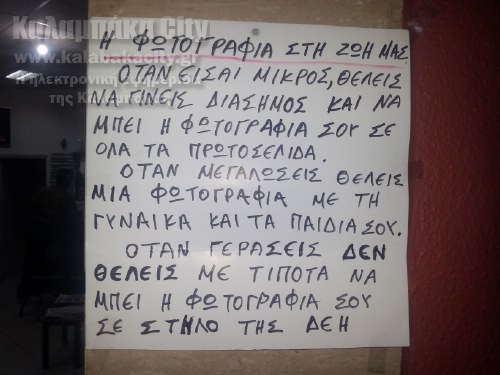 Καλαμπάκα City
www.kalabakacity.gr
Η ηλεκτρονική εφημερίδα
της Καλαμπάκας
Η ΦΩΤΟΓΡΑΦΙΑ ΣΤΗ ΖΩΗ ΜΑΣ
ΟΤΑΝ ΕΙΣΑΙ ΜΙΚΡΟΣ, ΘΕΛΕΙΣ
ΝΑ ΓΙΝΕΙΣ ΔΙΑΣΗΜΟΣ ΚΑΙ ΝΑ
ΜΠΕΙ Η ΦΩΤΟΓΡΑΦΙΑ ΣΟΥ ΣΕ
ΟΛΑ ΤΑ ΠΡΩΤΟΣΕΛΙΔΑ.
ΟΤΑΝ ΜΕΓΑΛΩΣΕΙΣ ΘΕΛΕΙΣ
ΜΙΑ ΦΩΤΟΓΡΑΦΙΑ ΜΕ ΤΗ
ΓΥΝΑΙΚΑ ΚΑΙ ΤΑ ΠΑΙΔΙΑ ΣΟΥ.
ΟΤΑΝ ΓΕΡΑΣΕΙΣ ΔΕΝ
ΘΕΛΕΙΣ ΜΕ ΤΙΠΟΤΑ ΝΑ
ΜΠΕΙ Η ΦΩΤΟΓΡΑΦΙΑ ΣΟΥ
ΣΕ ΣΤΗΛΟ ΤΗΣ ΔΕΗ